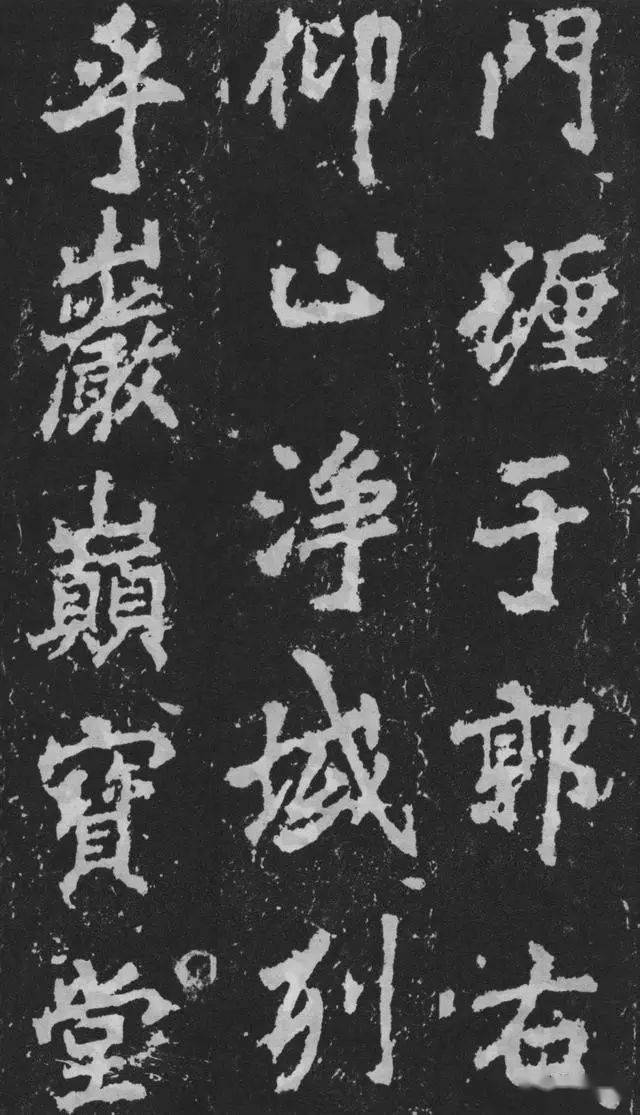 門纏于郭右
仰山淨域列
乎巖巔寶堂